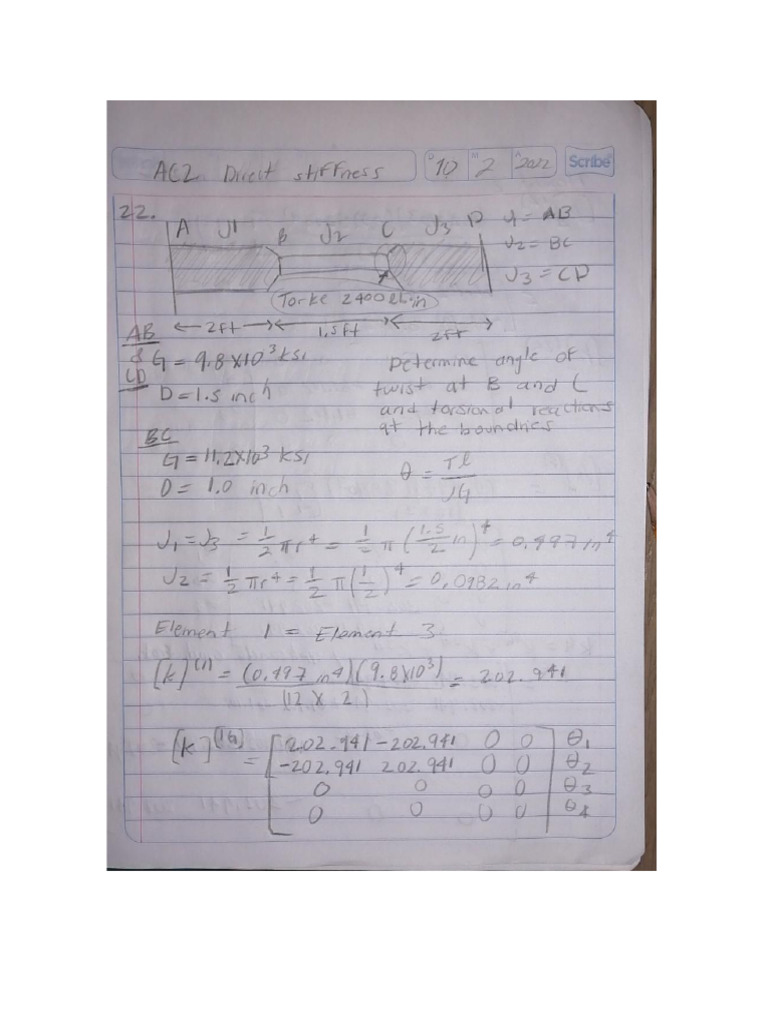 AC2 Direct stiffness
D 10 M 2 A 2022 Scribe
22.
A J1 B J2 C J3 D
J1 = AB
J2 = BC
J3 = CD
Torke 2400 lb·in
2ft 1,5ft 2ft
AB
&
CD
G = 9.8x10³ ksi
D = 1.5 inch
Determine angle of
twist at B and C
and torsional reactions
at the boundries
BC
G = 11.2x10³ ksi
D = 1.0 inch
θ = Tl/JG
J1 = J3 = 1/2 πr⁴ = 1/2 π (1.5/2 in)⁴ = 0.497 in⁴
J2 = 1/2 πr⁴ = 1/2 π (1/2)⁴ = 0,0982 in⁴
Element 1 = Element 3
[k]⁽¹⁾ = (0.497 in⁴)(9.8x10³) / (12 x 2) = 202.941
[k]⁽¹ᴳ⁾ =
202.941 -202.941 0 0 θ1
-202.941 202.941 0 0 θ2
0 0 0 0 θ3
0 0 0 0 θ4